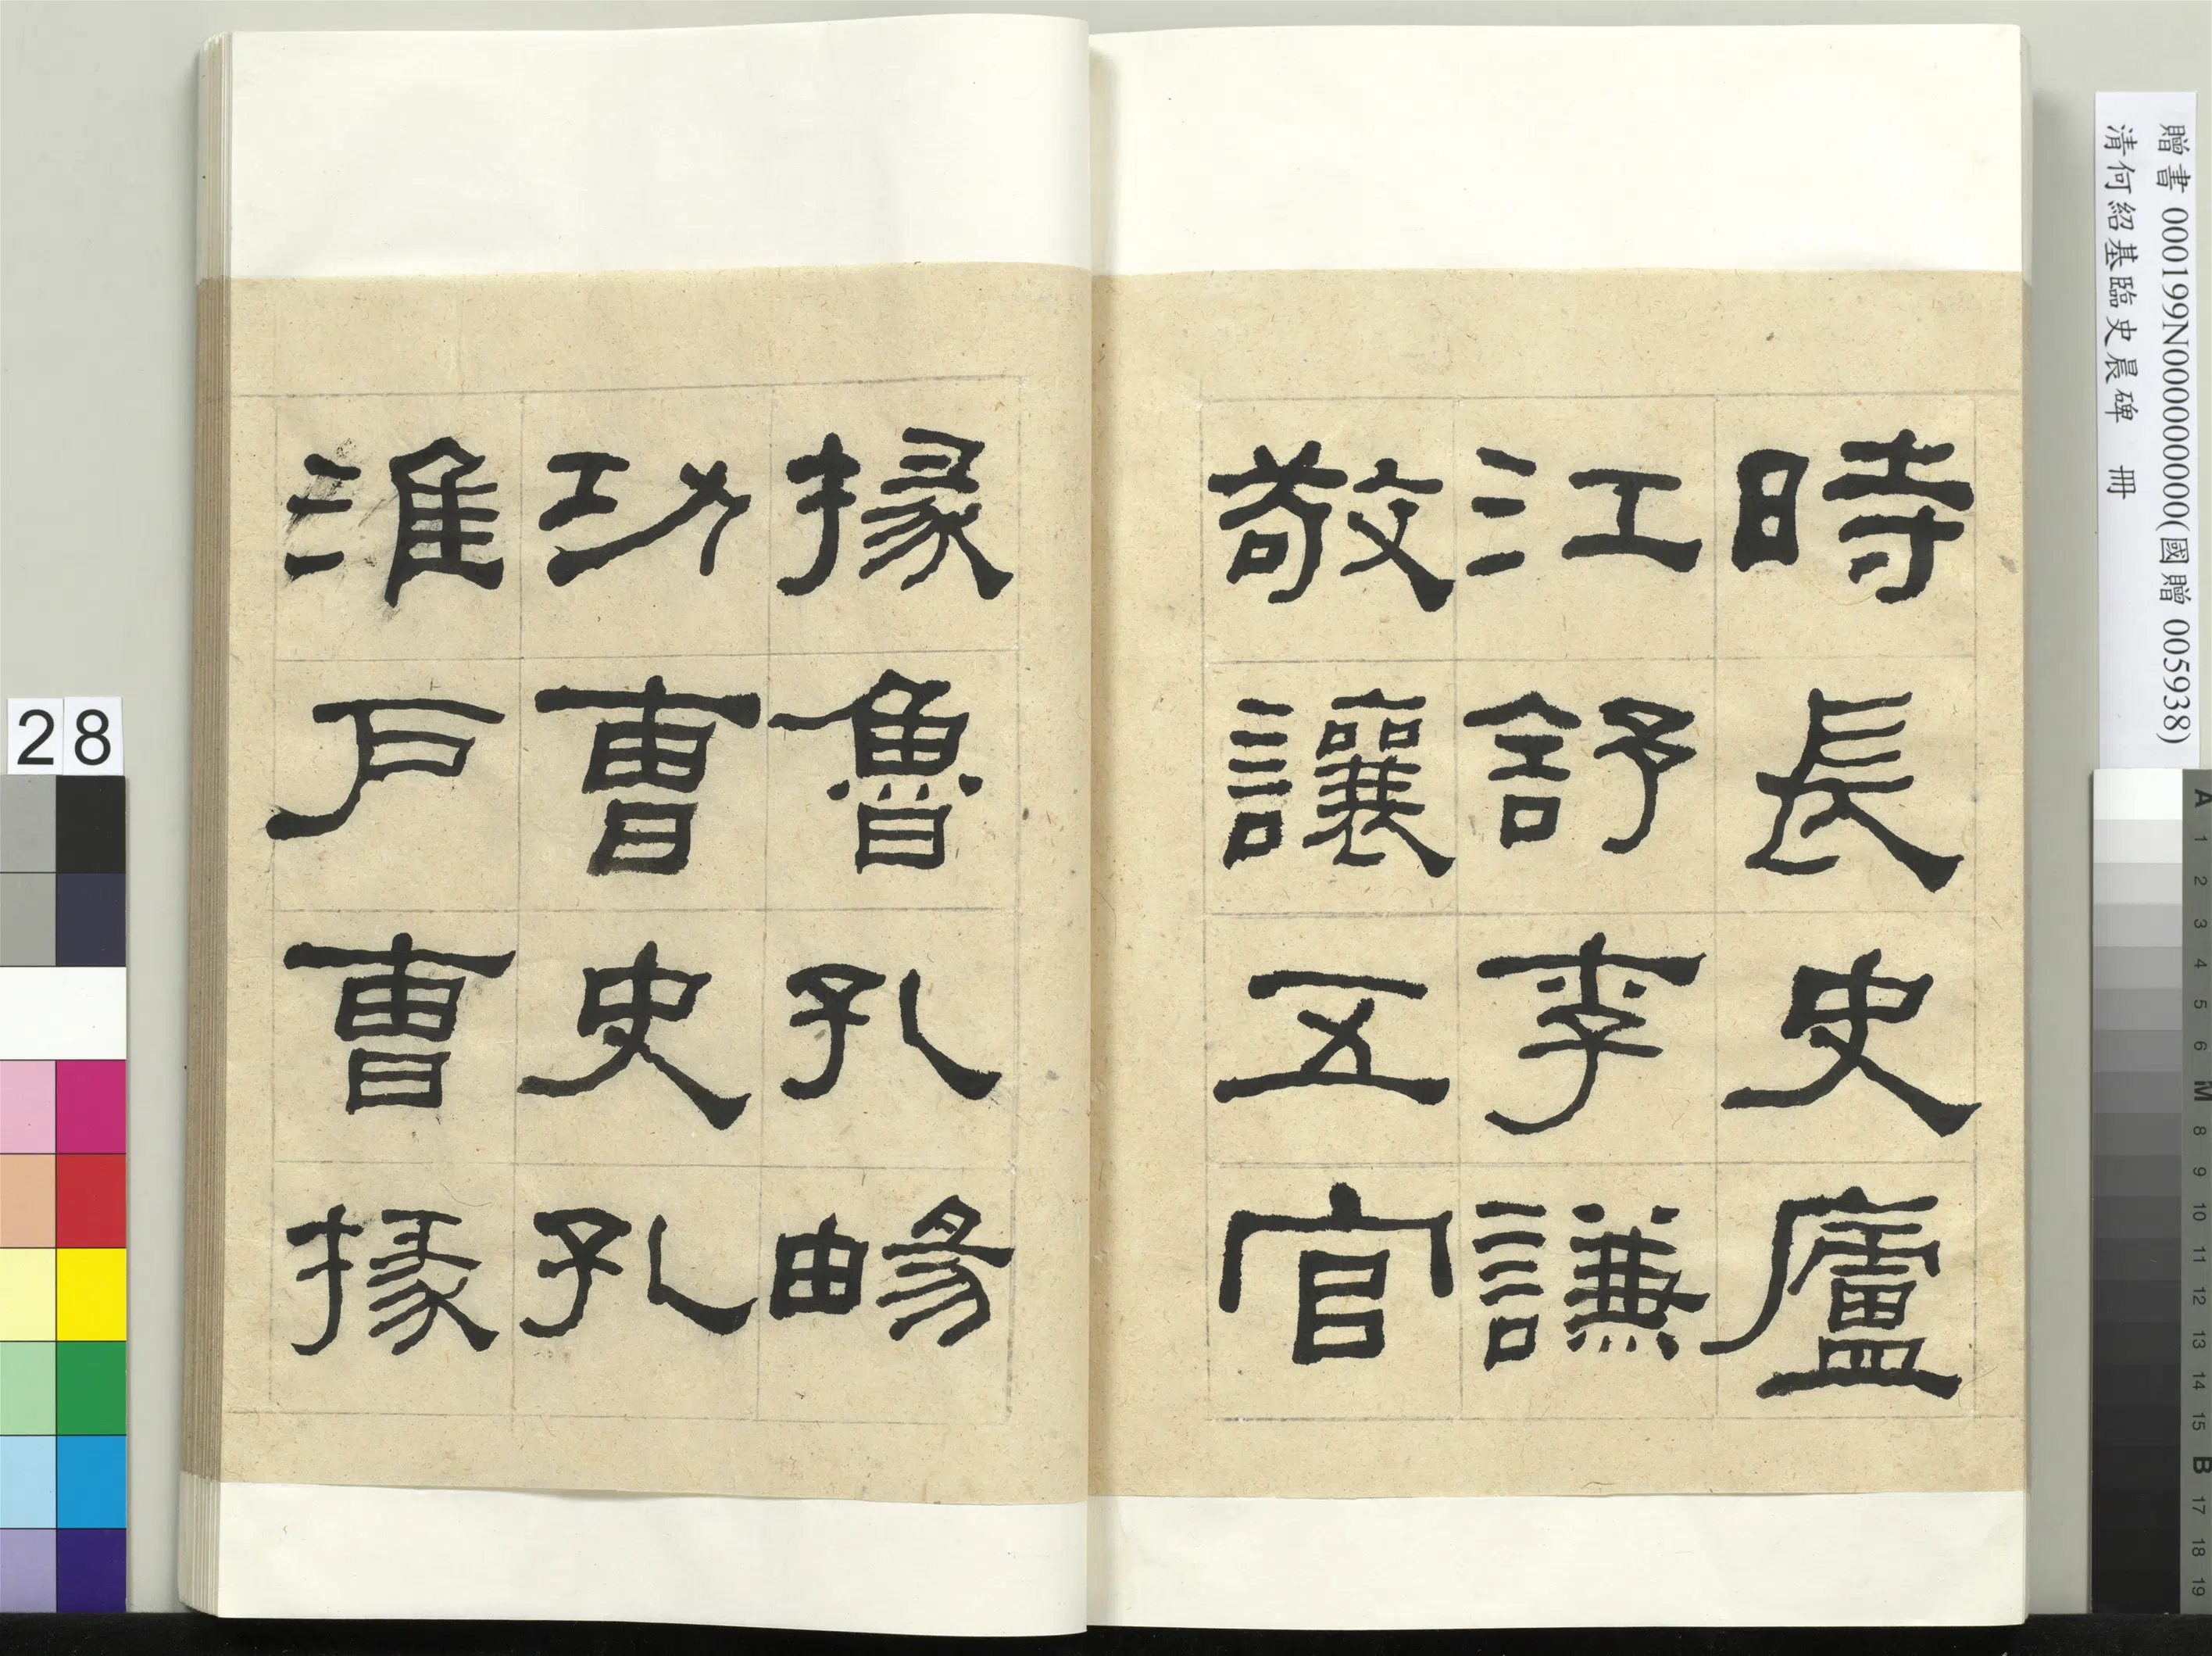 時長史廬
江舒李謙
敬讓五官
掾魯孔暢
功曹史孔
淮戶曹掾
贈書 000199N000000000(國贈 005938)
清何紹基臨史晨碑 冊
28
A 1 2 3 4 5 6 M 8 9 10 11 12 13 14 15 B 17 18 19